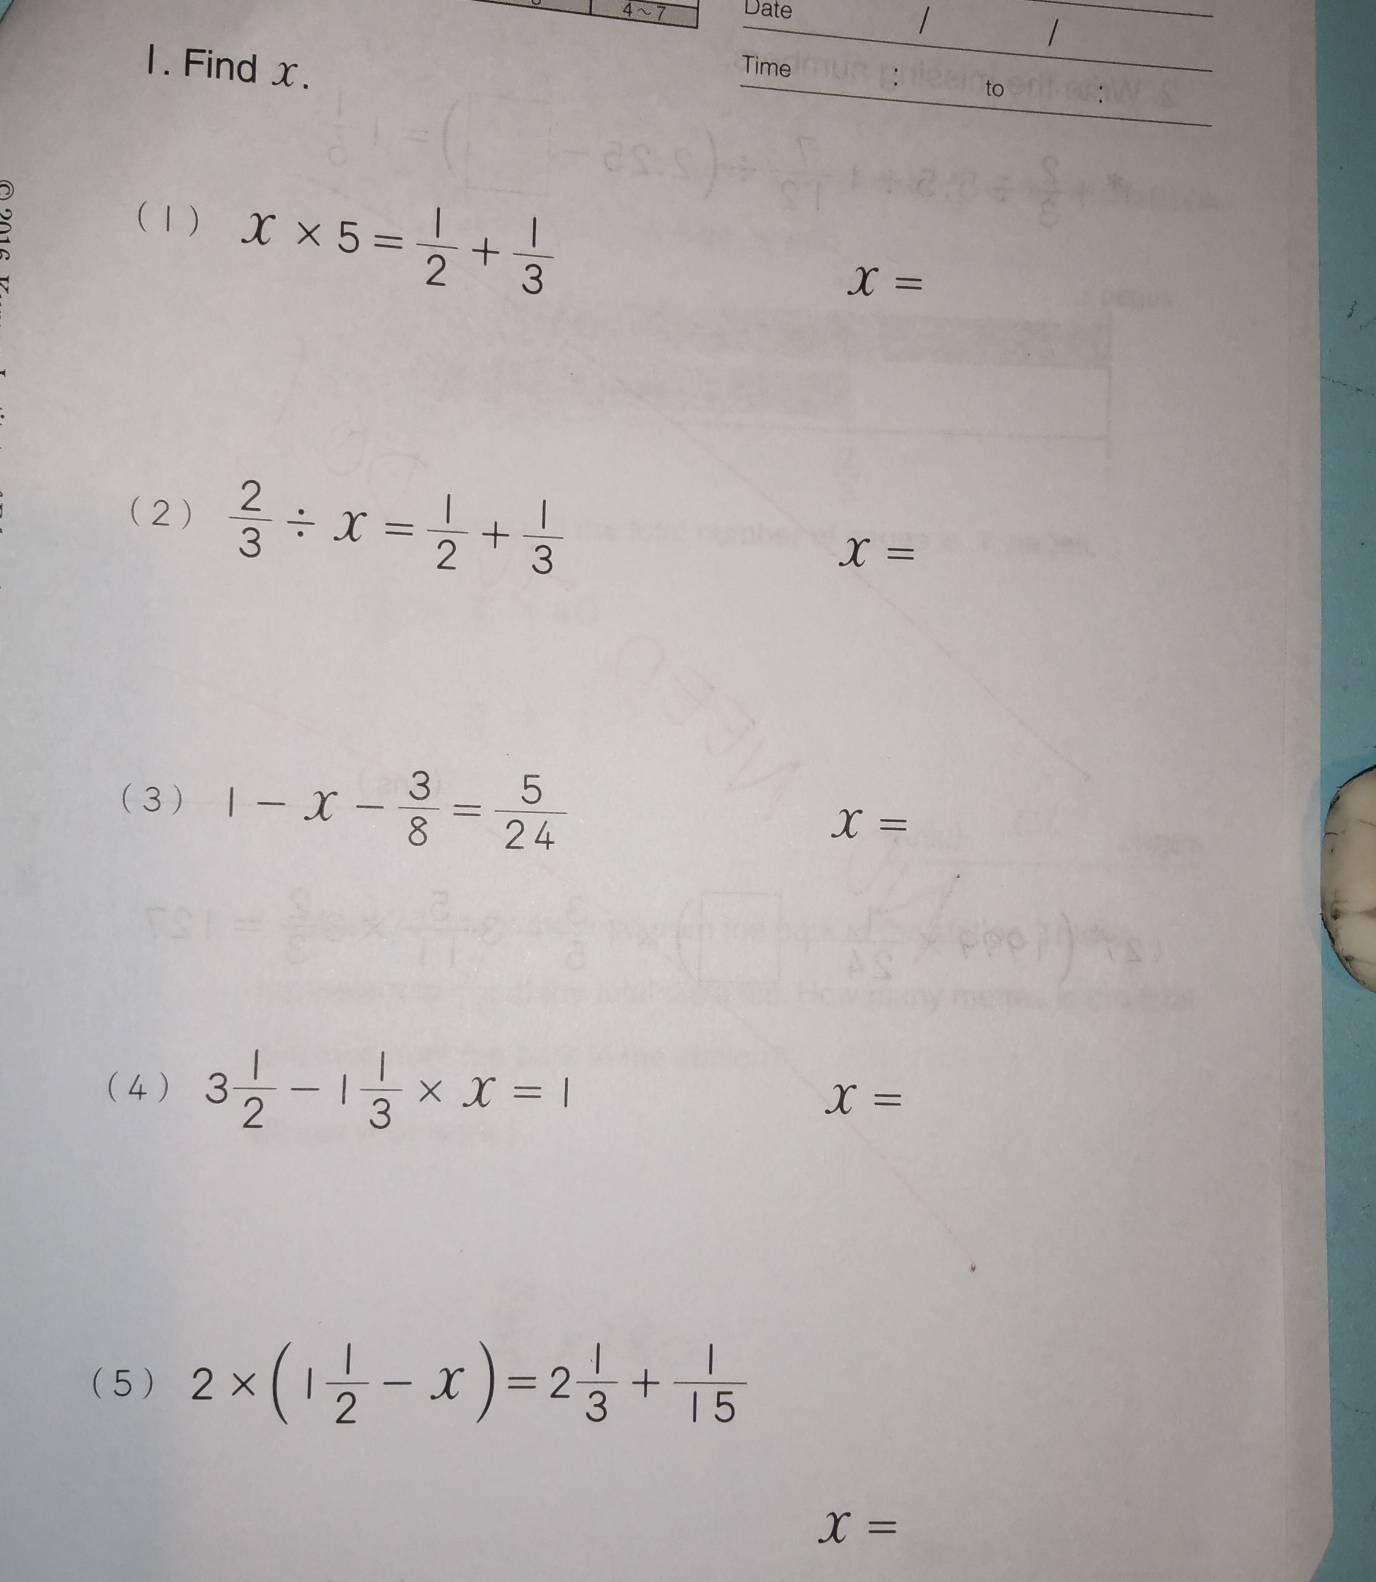 4~7
Date / /
Time : to :
1. Find x.
(1) x × 5 = 1/2 + 1/3
x =
(2) 2/3 ÷ x = 1/2 + 1/3
x =
(3) 1 − x − 3/8 = 5/24
x =
(4) 3 1/2 − 1 1/3 × x = 1
x =
(5) 2 × (1 1/2 − x) = 2 1/3 + 1/15
x =
© 2016